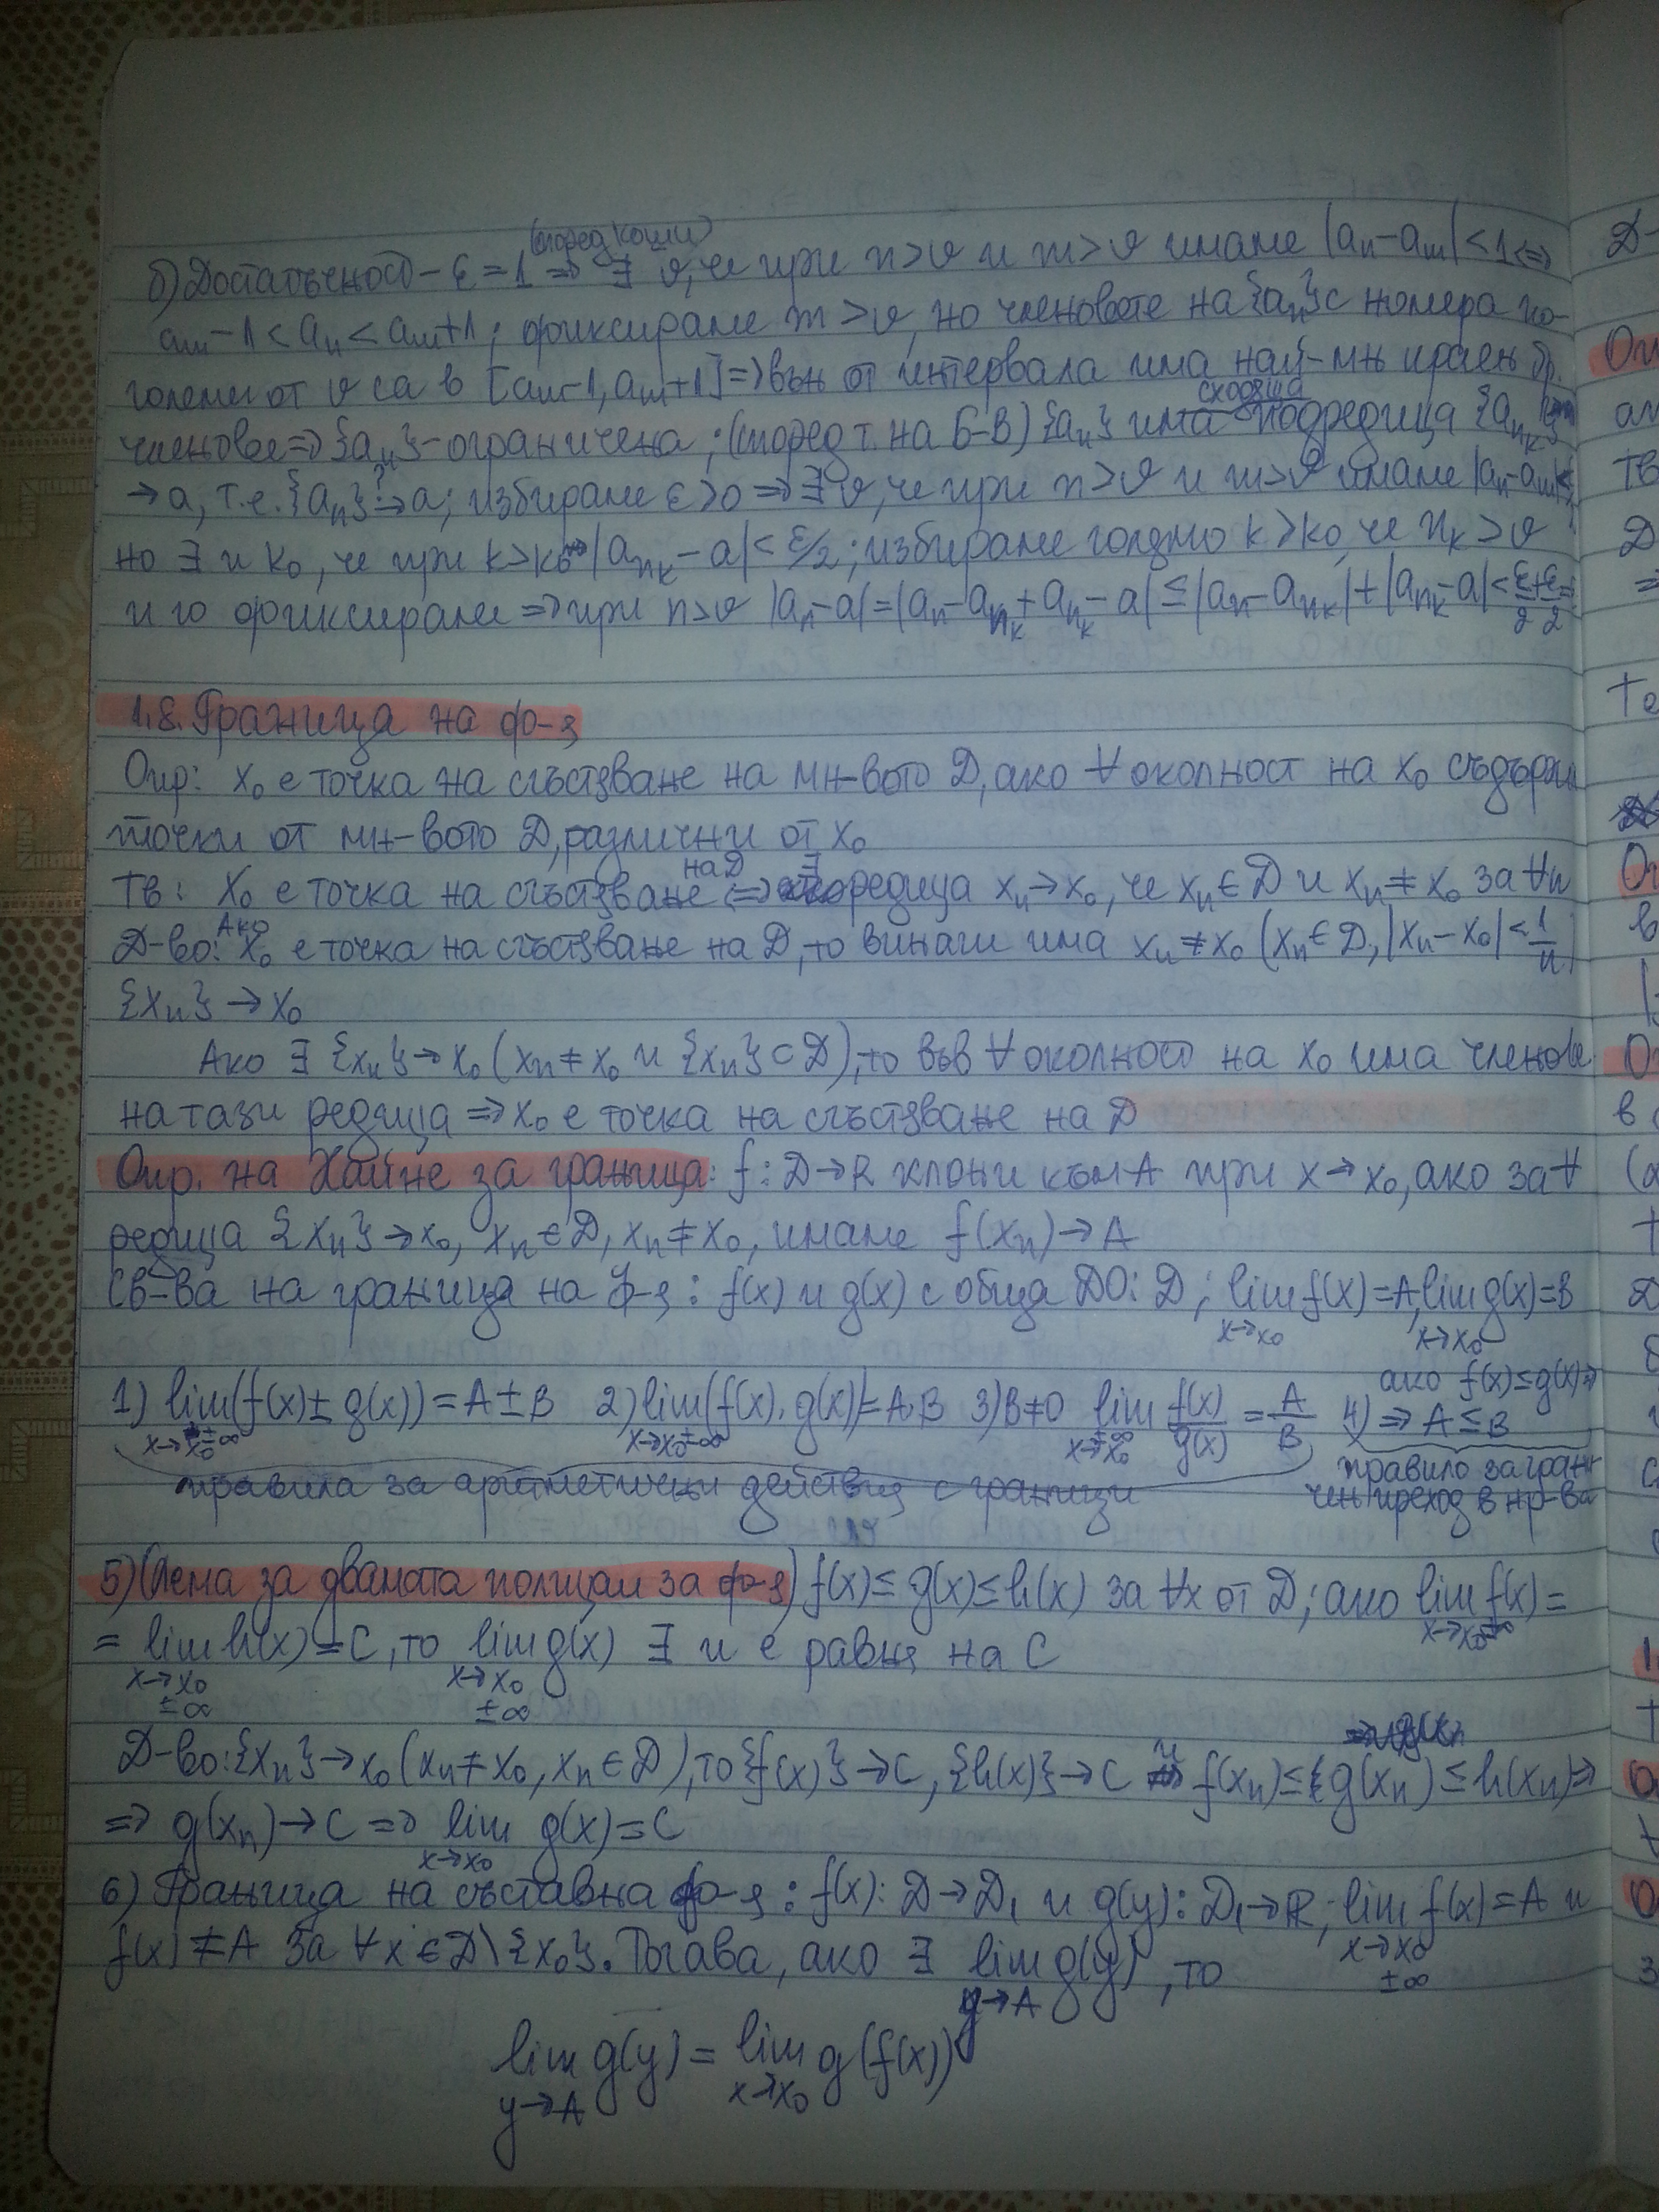 (според Коши)
б) Достатъчност - ε = 1 => ∃ ν, че при n > ν и m > ν имаме |aₙ - aₘ| < 1 <=>
aₘ - 1 < aₙ < aₘ + 1; фиксираме m > ν, но членовете на {aₙ} с номера по-
големи от ν са в [aₘ - 1, aₘ + 1] => вън от интервала има най-мн краен бр.
членове => {aₙ} - ограничена; (според т. на Б-В) {aₙ} има сходяща подредица {aₙₖ}
→ a, т.е. {aₙ} →? a; избираме ε > 0 => ∃ ν, че при n > ν и m > ν имаме |aₙ - aₘ| <
но ∃ и k₀, че при k > k₀ |aₙₖ - a| < ε/2; избираме голямо k > k₀, че nₖ > ν
и го фиксираме => при n > ν |aₙ - a| = |aₙ - aₙₖ + aₙₖ - a| ≤ |aₙ - aₙₖ| + |aₙₖ - a| < ε/2 + ε/2 =
1.8. Граница на ф-я
Опр: x₀ е точка на сгъстяване на мн-вото D, ако ∀ околност на x₀ съдържа
точки от мн-вото D, различни от x₀
Тв: x₀ е точка на сгъстяване на D <=> ∃ редица xₙ → x₀, че xₙ ∈ D и xₙ ≠ x₀ за ∀n
Д-во: Ако x₀ е точка на сгъстяване на D, то винаги има xₙ ≠ x₀ (xₙ ∈ D, |xₙ - x₀| < 1/n)
{xₙ} → x₀
Ако ∃ {xₙ} → x₀ (xₙ ≠ x₀ и {xₙ} ⊂ D), то във ∀ околност на x₀ има членове
на тази редица => x₀ е точка на сгъстяване на D
Опр. на Хайне за граница: f: D → R клони към A при x → x₀, ако за ∀
редица {xₙ} → x₀, xₙ ∈ D, xₙ ≠ x₀, имаме f(xₙ) → A
Св-ва на граница на ф-я: f(x) и g(x) с обща ДО: D; lim f(x) = A, lim g(x) = B
x→x₀ x→x₀
ако f(x) ≤ g(x) =>
1) lim (f(x) ± g(x)) = A ± B 2) lim (f(x).g(x)) = A.B 3) B ≠ 0 lim f(x)/g(x) = A/B 4) => A ≤ B
x→x₀ ±∞ x→x₀ ±∞ x→x₀ ±∞
правила за аритметични действия с граници правило за грани-
чен преход в нр-ва
5) (Лема за двамата полицаи за ф-я) f(x) ≤ g(x) ≤ h(x) за ∀x от D; ако lim f(x) =
x→x₀ ±∞
= lim h(x) = C, то lim g(x) ∃ и е равна на C
x→x₀ x→x₀
±∞ ±∞
Д-во: {xₙ} → x₀ (xₙ ≠ x₀, xₙ ∈ D), то {f(x)} → C, {h(x)} → C и f(xₙ) ≤ g(xₙ) ≤ h(xₙ) =>
=> g(xₙ) → C => lim g(x) = C
x→x₀
6) Граница на съставна ф-я: f(x): D → D₁ и g(y): D₁ → R; lim f(x) = A и
x→x₀
±∞
f(x) ≠ A за ∀x ∈ D\{x₀}. Тогава, ако ∃ lim g(y), то
y→A
lim g(y) = lim g(f(x))
y→A x→x₀